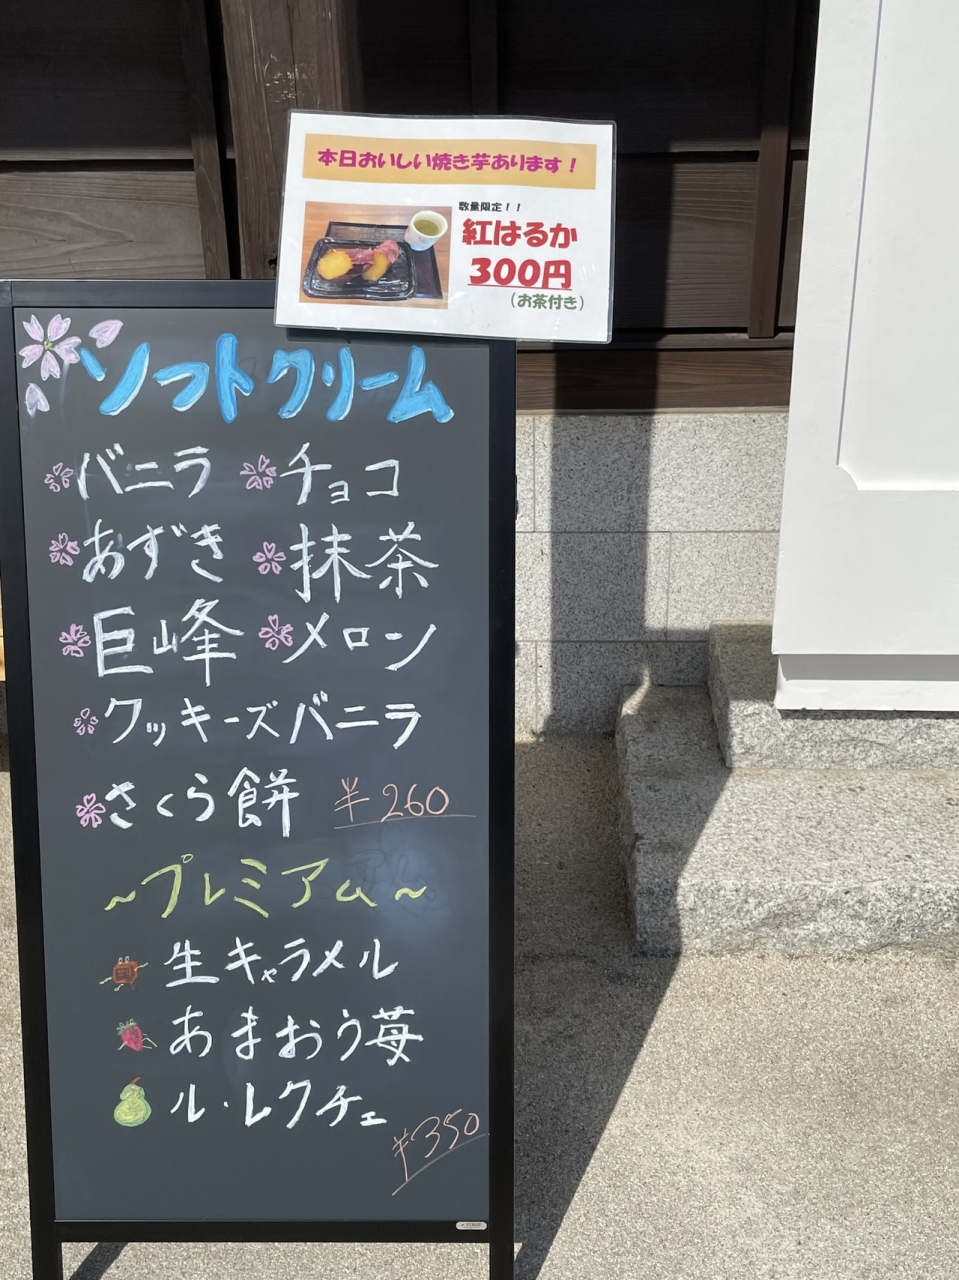 本日おいしい焼き芋あります！
数量限定！！
紅はるか
300円
（お茶付き）
ソフトクリーム
バニラ チョコ
あずき 抹茶
巨峰 メロン
クッキーズバニラ
さくら餅 ¥260
～プレミアム～
生キャラメル
あまおう苺
ル・レクチェ
¥350